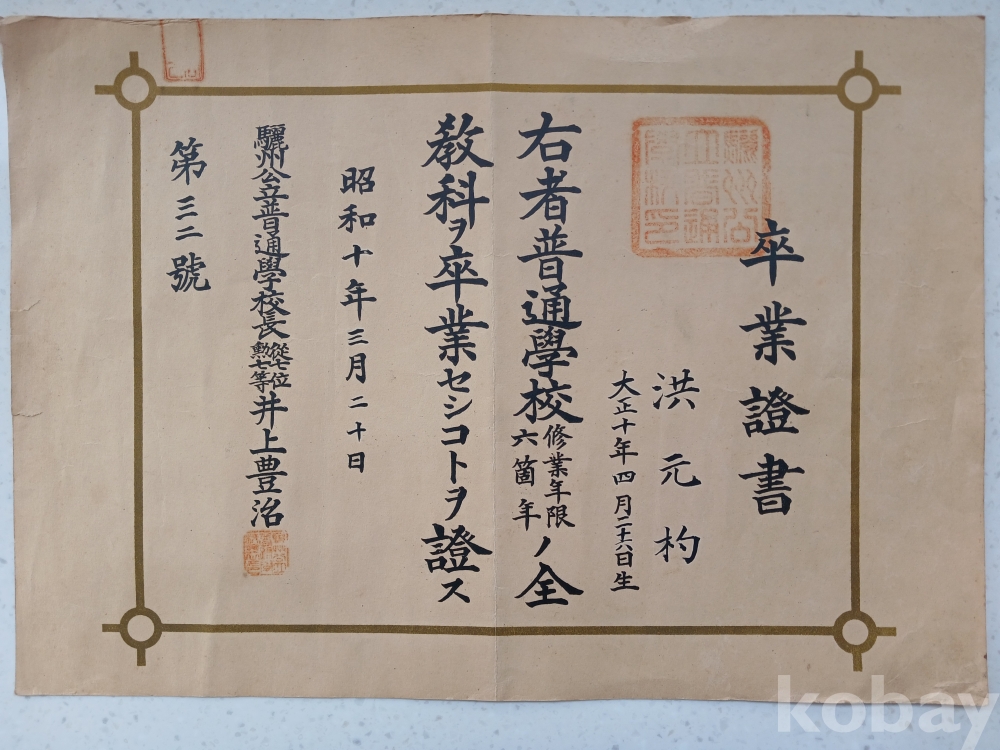 卒業證書
洪元杓
大正十年四月二十六日生
右者普通學校修業年限六箇年ノ全
教科ヲ卒業セシコトヲ證ス
昭和十年三月二十日
驪州公立普通學校長從七位勲七等井上豊治
第三二號
kobay